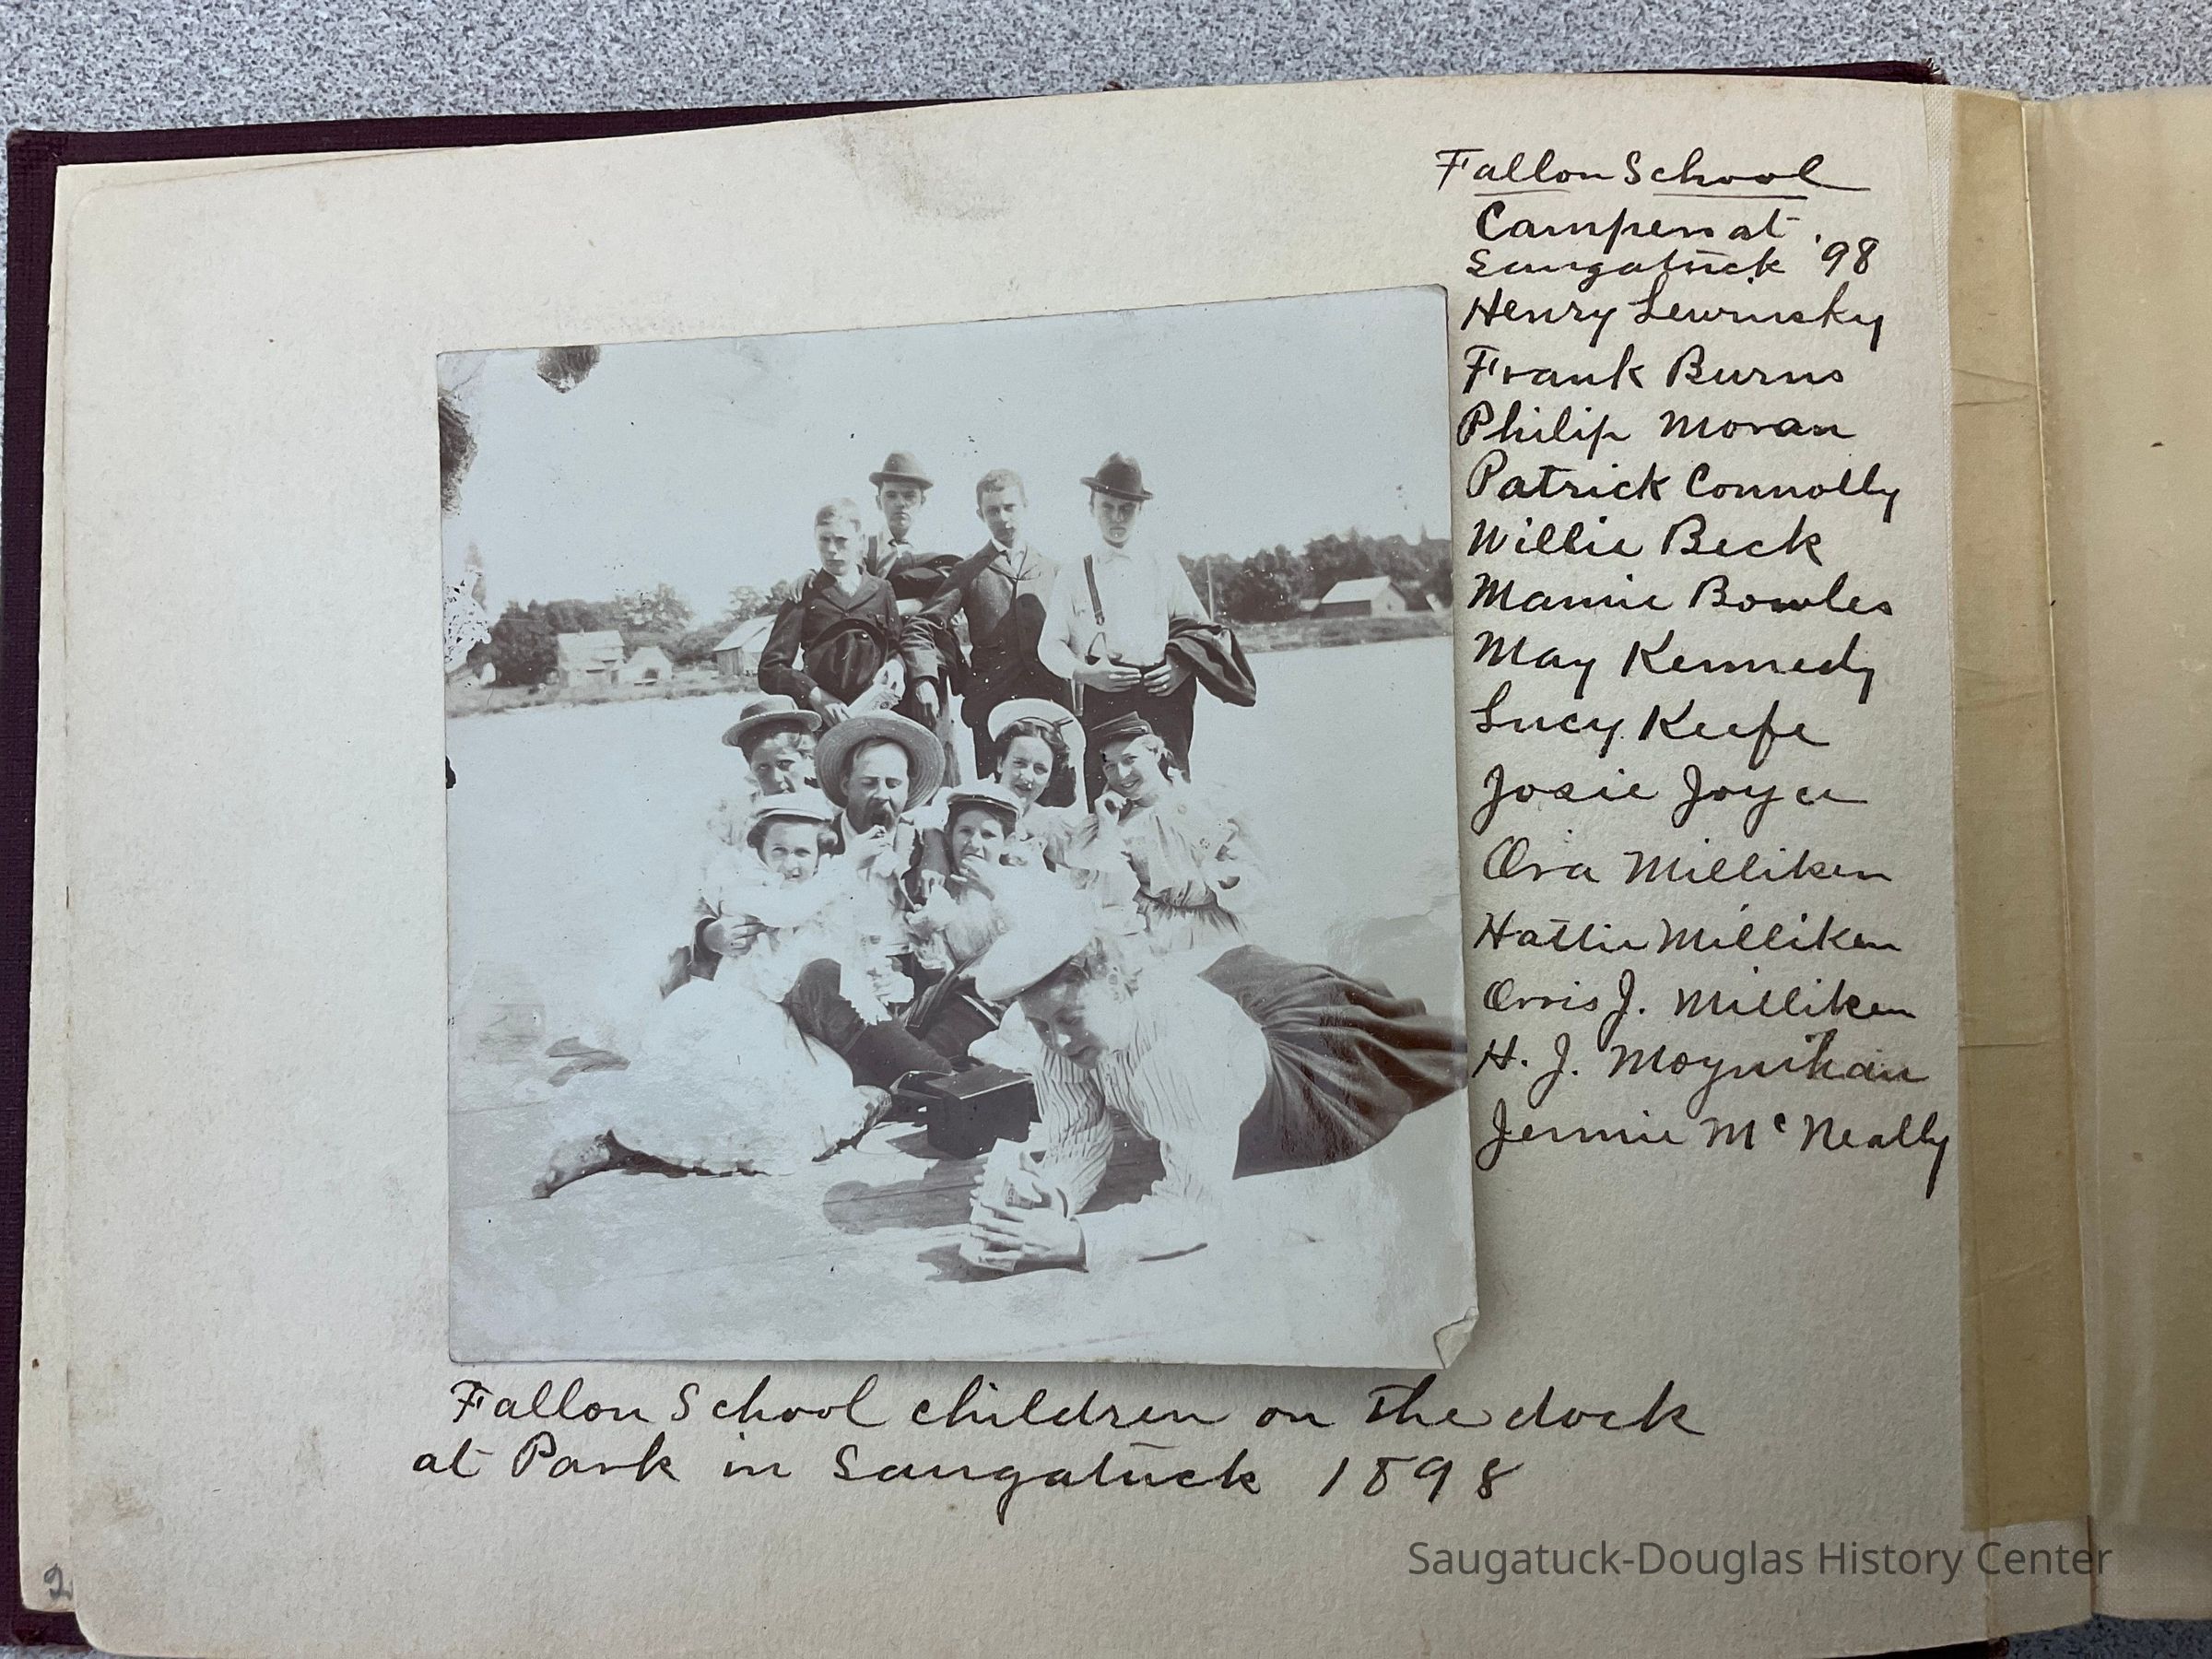 Fallon School
Campers at
Saugatuck '98
Henry Lewinsky
Frank Burns
Philip Moran
Patrick Connolly
Willie Beck
Mamie Bowles
May Kennedy
Lucy Keefe
Josie Joyce
Ora Milliken
Hattie Milliken
Orris J. Milliken
H. J. Moynihan
Jennie McNeally
Fallon School children on the dock
at Park in Saugatuck 1898
2
Saugatuck-Douglas History Center